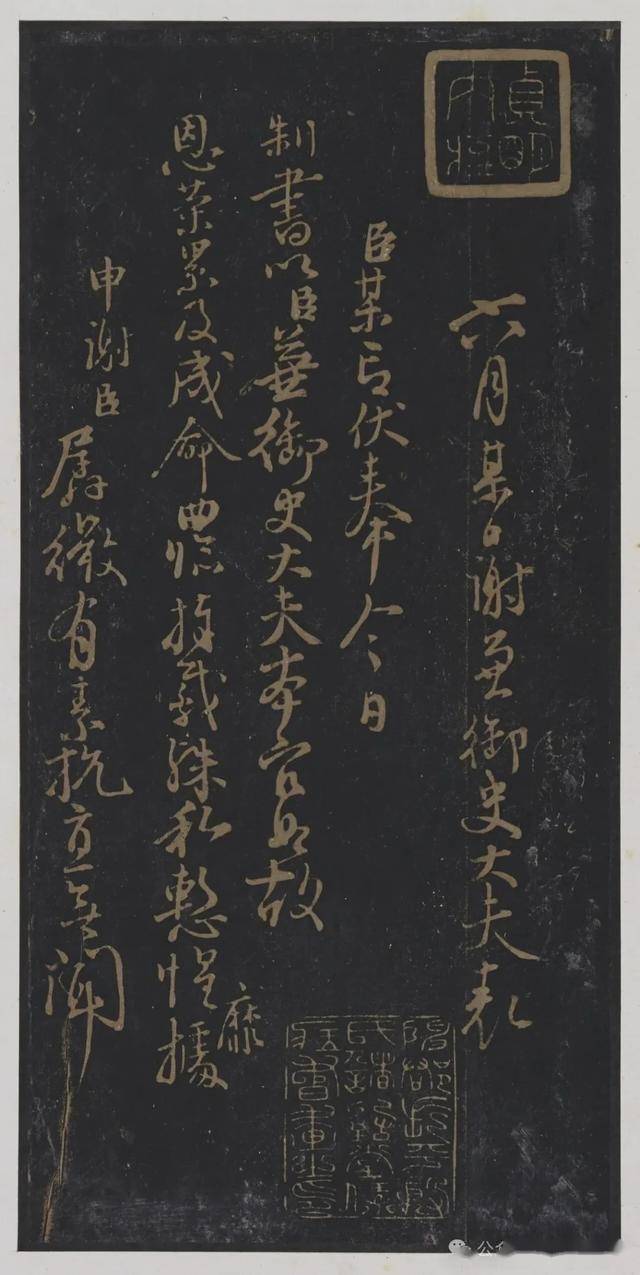 貞明
六月某日謝兼御史大夫表
臣某言伏奉今日
制書以臣兼御史大夫本官如故
恩榮累及成命曲臨捧戴殊私慙惶靡據
申謝臣
孱微有素抗直無聞